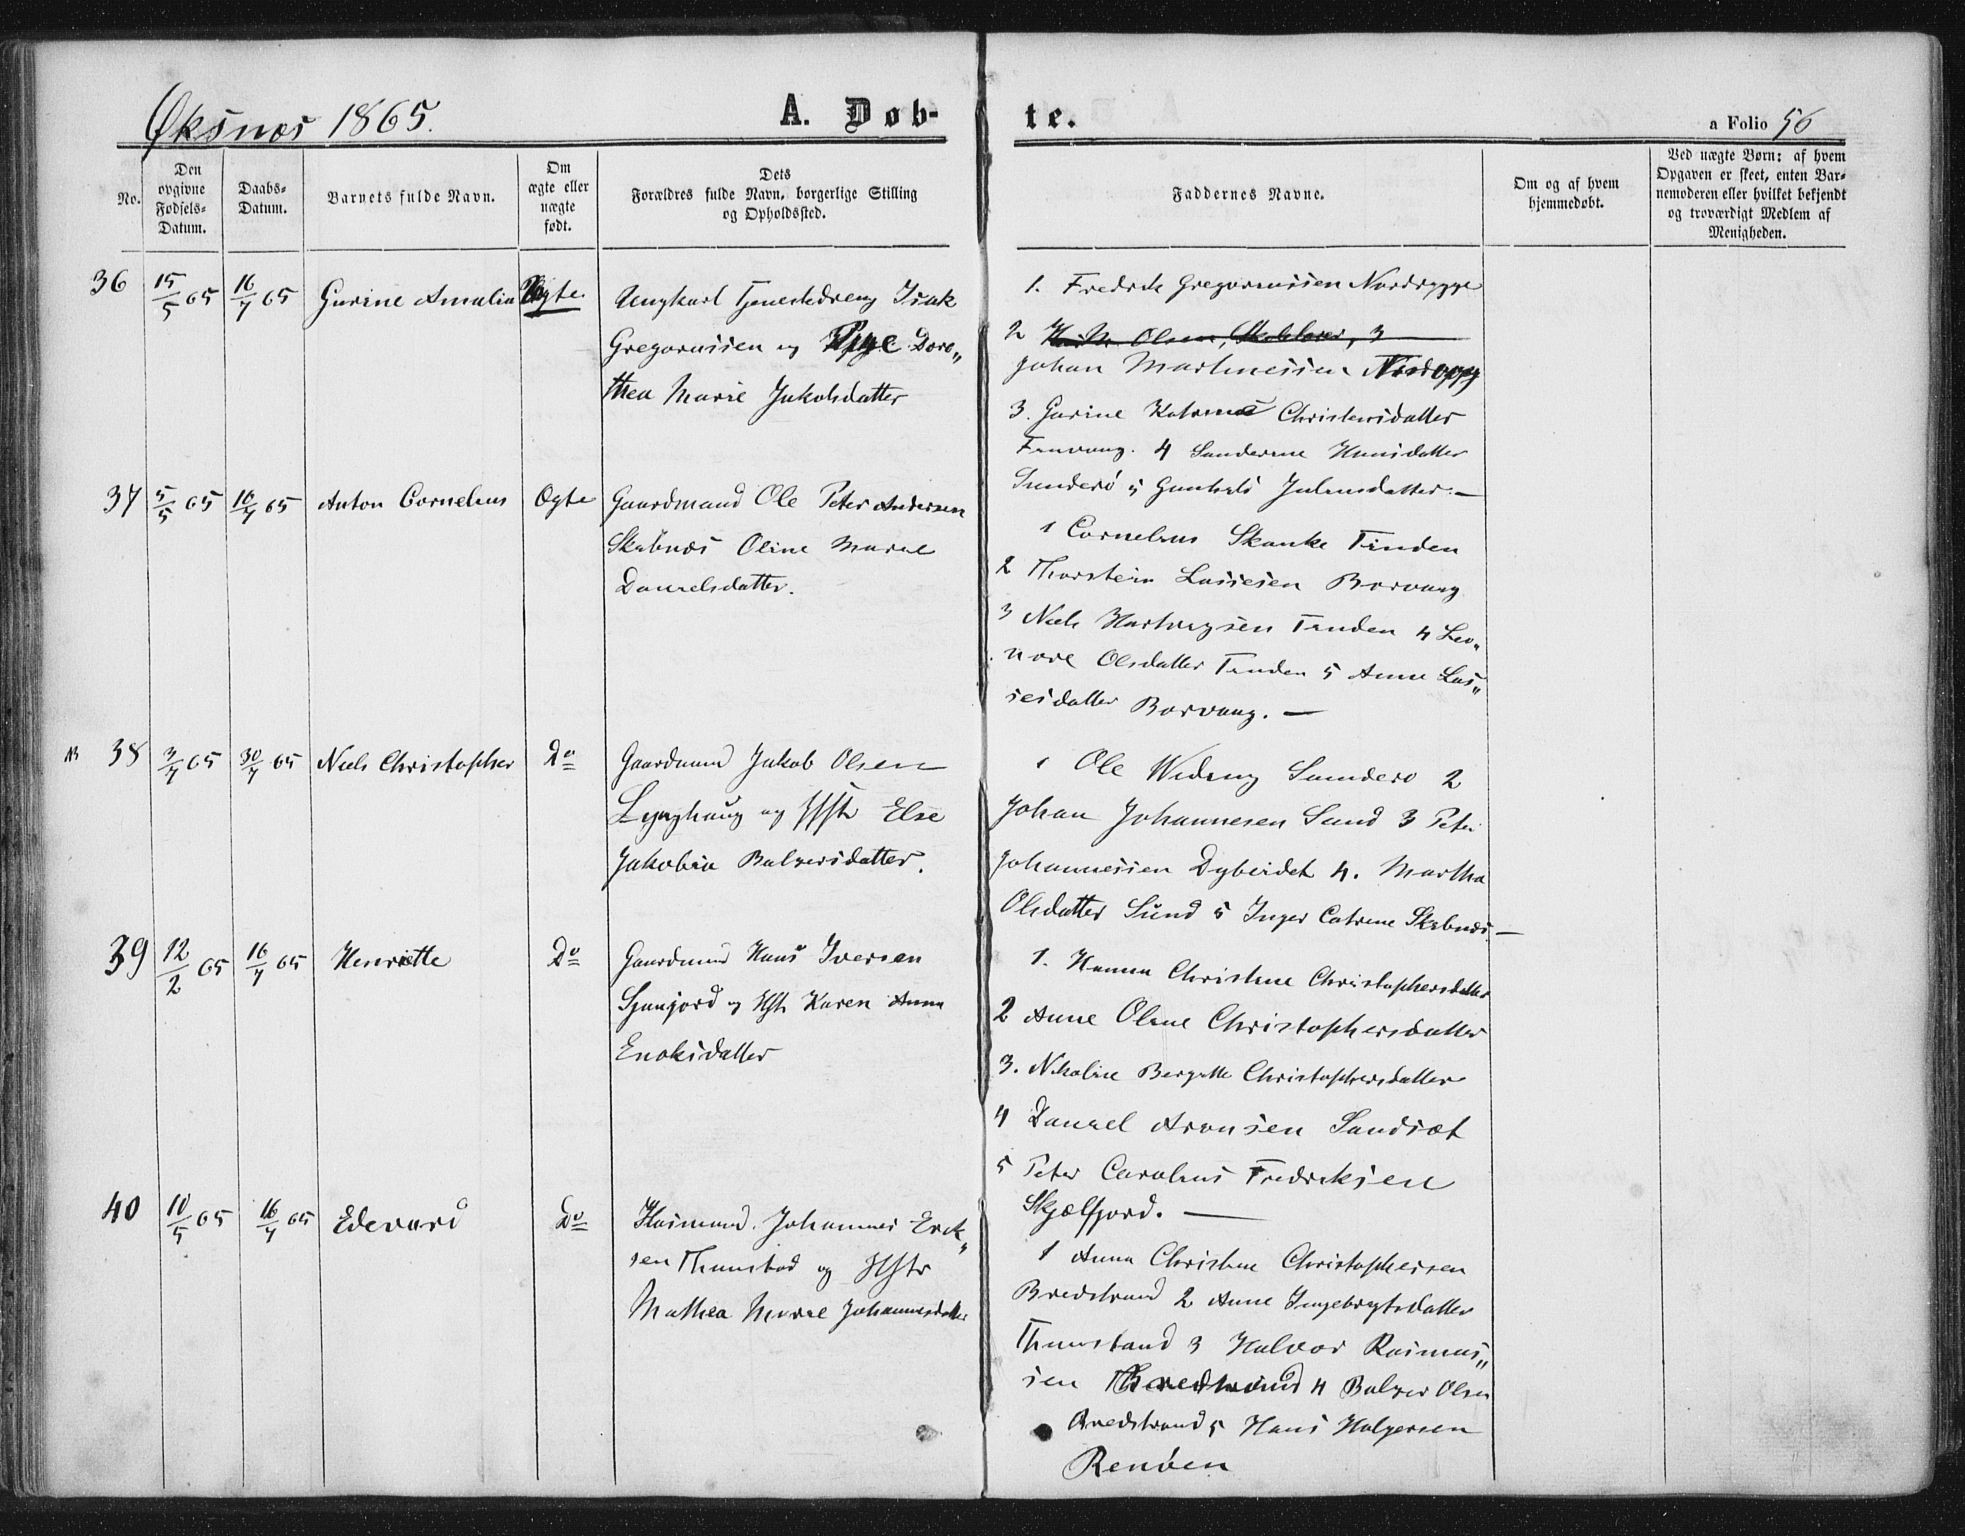 Øksnæs 1865.
A. Døb-
te.
a Folio 56
No.
Den
ovgivne
Fødsels-
Datum.
Daabs-
Datum.
Barnets fulde Navn.
Om
ægte eller
uægte
født.
Dets
Forældres fulde Navn, borgerlige Stilling
og Opholdssted.
Faddernes Navne.
Om og af hvem
hjemmedøbt.
Ved uægte Børn: af hvem
Opgaven er skeet, enten Bar-
nemoderen eller hvilket bekjendt
og troværdigt Medlem af
Menigheden.
36 15/5 65 16/7 65 Gurine Amalia Uægte
Ungkarl Tjenestedreng Isak
Gregorussen og Pige Doro„
thea Marie Jakobsdatter
1. Fredrik Gregorussen Nordrygge
2 Olsen, 3
Johan Martinessen
3. Gurine Katrine Christensdatter
4 Hansdatter
Sanderö 5 Julausdatter. —
37 5/5 65 16/7 65 Anton Cornelius Ægte
Gaardmand Ole Peter Andersen
Skabnæs Oline Marie
Danielsdatter.
1 Cornelius Skanke Tinden
2 Thorstein Lassesen Borvaag
3 Niels Hartvigsen Tinden 4 Leo„
nore Olsdatter Tinden 5 Anne Las„
sesdatter Borvaag. —
38 3/7 65 30/7 65 Niels Christopher Do
Gaardmand Jakob Olsen
Lynghaug og Hstr Else
Jakobia Balzersdatter.
1 Ole Sanderö 2
Johan Johannesen Sund 3 Peter
Johannessen 4. Martha
Olsdatter Sund 5 Inger Catrine Skabnæs. —
39 12/2 65 16/7 65 Henriette Do
Gaardmand Hans Iversen
og Hstr Karen Anna
Enoksdatter
1. Hanna Christine Christophersdatter
2 Anne Oline Christophersdatter
3. Nikoline Bergitte Christophersdatter
4 Daniel Aronsen Sandsæt
5 Peter Carolius Fredriksen
Skjælfjord. —
40 10/5 65 16/7 65 Edevard Do
Huusmand. Johannes Erik„
sen Thunstad og Hstr
Mathea Marie Johannesdatter
1 Anna Christine Christophersen
Bredstrand 2 Anne Ingebrigtsdatter
Thunstad 3 Halvor Rasmus„
sen Bredstrand 4 Balzer Olsen
Bredstrand 5 Hans Holgersen
Renöen